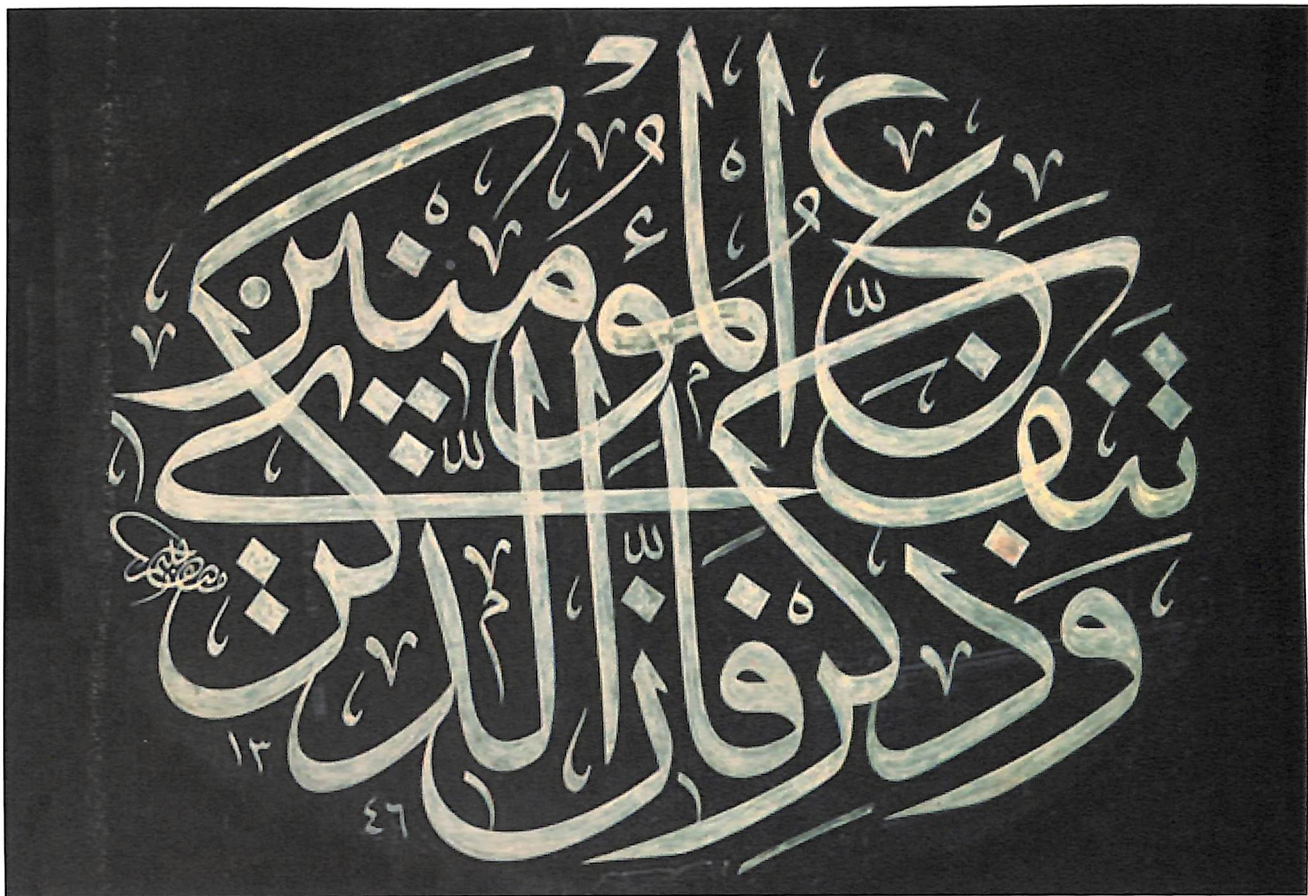 وَذَكِّرْ فَإِنَّ الذِّكْرَىٰ
تَنْفَعُ الْمُؤْمِنِينَ
١٣٤٦